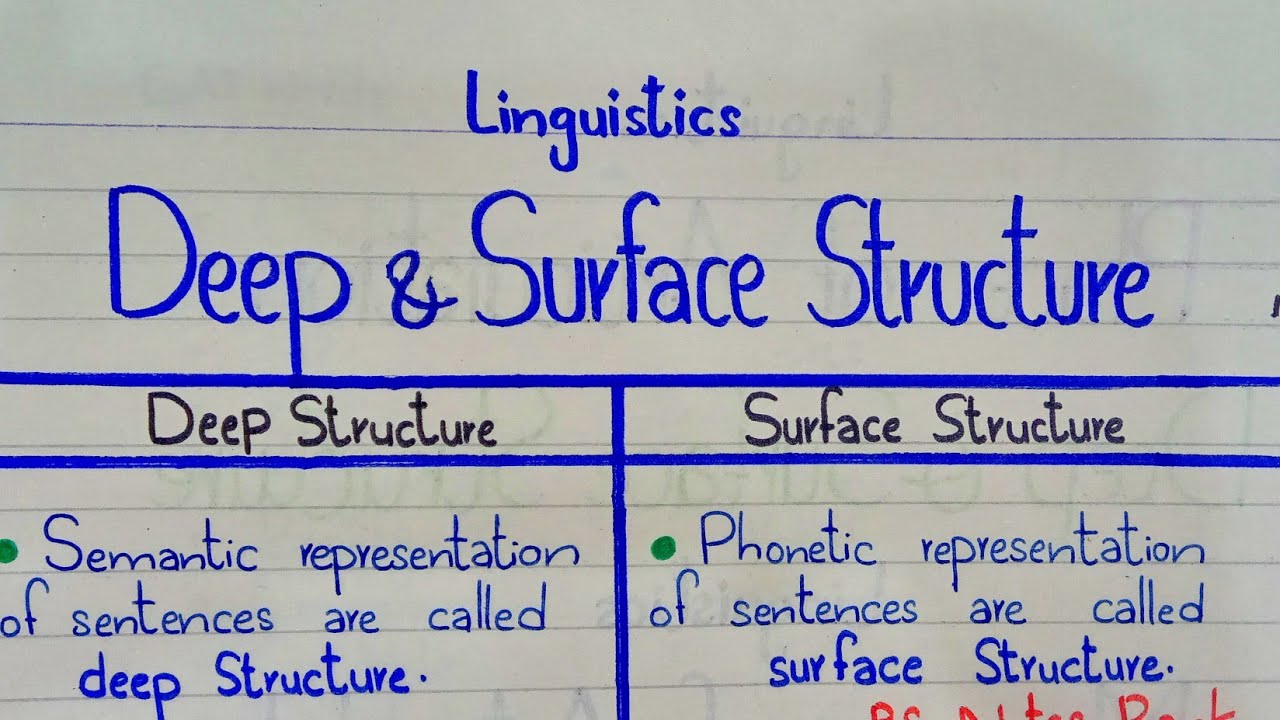 Linguistics
Deep & Surface Structure
Deep Structure
Surface Structure
• Semantic representation
of sentences are called
deep Structure.
• Phonetic representation
of sentences are called
surface Structure.